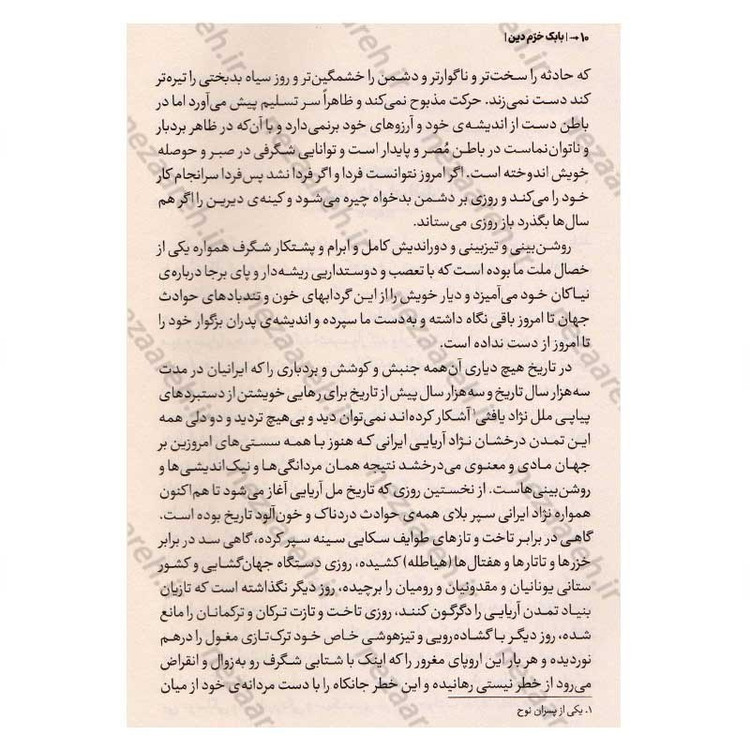 ۱۰ → | بابک خرّم دین |
که حادثه را سخت‌تر و ناگوارتر و دشمن را خشمگین‌تر و روز سیاه بدبختی را تیره‌تر
کند دست نمی‌زند. حرکت مذبوح نمی‌کند و ظاهراً سر تسلیم پیش می‌آورد اما در
باطن دست از اندیشه‌ی خود و آرزوهای خود برنمی‌دارد و با آن‌که در ظاهر بردبار
و ناتوان‌نماست در باطن مُصر و پایدار است و توانایی شگرفی در صبر و حوصله
خویش اندوخته است. اگر امروز نتوانست فردا و اگر فردا نشد پس‌فردا سرانجام کار
خود را می‌کند و روزی بر دشمن بدخواه چیره می‌شود و کینه‌ی دیرین را اگر هم
سال‌ها بگذرد باز روزی می‌ستاند.
روشن‌بینی و تیزبینی و دوراندیش کامل و ابرام و پشتکار شگرف همواره یکی از
خصال ملت ما بوده است که با تعصب و دوستداریی ریشه‌دار و پای برجا درباره‌ی
نیاکان خود می‌آمیزد و دیار خویش را از این گردابهای خون و تندبادهای حوادث
جهان تا امروز باقی نگاه داشته و به‌دست ما سپرده و اندیشه‌ی پدران بزگوار خود را
تا امروز از دست نداده است.
در تاریخ هیچ دیاری آن‌همه جنبش و کوشش و بردباری را که ایرانیان در مدت
سه‌هزار سال تاریخ و سه‌هزار سال پیش از تاریخ برای رهایی خویشتن از دستبردهای
پیاپی ملل نژاد یافثی۱ آشکار کرده‌اند نمی‌توان دید و بی‌هیچ تردید و دو دلی همه
این تمدن درخشان نژاد آریایی ایرانی که هنوز با همه سستی‌های امروزین بر
جهان مادی و معنوی می‌درخشد نتیجه همان مردانگی‌ها و نیک‌اندیشی‌ها و
روشن‌بینی‌هاست. از نخستین روزی که تاریخ مل آریایی آغاز می‌شود تا هم‌اکنون
همواره نژاد ایرانی سپر بلای همه‌ی حوادث دردناک و خون‌آلود تاریخ بوده است.
گاهی در برابر تاخت و تازهای طوایف سکایی سینه سپر کرده، گاهی سد در برابر
خزرها و تاتارها و هفتال‌ها (هیاطله) کشیده، روزی دستگاه جهان‌گشایی و کشور
ستانی یونانیان و مقدونیان و رومیان را برچیده، روز دیگر نگذاشته است که تازیان
بنیاد تمدن آریایی را دگرگون کنند، روزی تاخت و تازت ترکان و ترکمانان را مانع
شده، روز دیگر با گشاده‌رویی و تیزهوشی خاص خود ترک‌تازی مغول را درهم
نوردیده و هر بار این اروپای مغرور را که اینک با شتابی شگرف رو به‌زوال و انقراض
می‌رود از خطر نیستی رهانیده و این خطر جانکاه را با دست مردانه‌ی خود از میان
۱. یکی از پسران نوح
nezaareh.ir